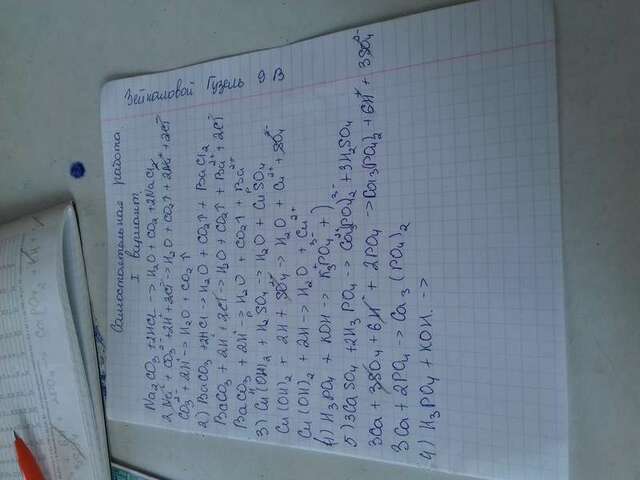 Зейналовой Гузель 9 В
Самостоятельная работа
I вариант.
Na₂CO₃ + 2HCl –> H₂O + CO₂ + 2NaCl
2Na⁺ + CO₃²⁻ + 2H⁺ + 2Cl⁻ –> H₂O + CO₂↑ + 2Na⁺ + 2Cl⁻
CO₃²⁻ + 2H –> H₂O + CO₂↑
2) BaCO₃ + 2HCl –> H₂O + CO₂↑ + BaCl₂
BaCO₃ + 2H + 2Cl –> H₂O + CO₂↑ + Ba²⁺ + 2Cl⁻
BaCO₃ + 2H⁺ –> H₂O + CO₂↑ + Ba²⁺
3) Cu(OH)₂ + H₂SO₄ –> H₂O + CuSO₄
Cu(OH)₂ + 2H + SO₄ –> H₂O + Cu²⁺ + SO₄²⁻
Cu(OH)₂ + 2H –> H₂O + Cu²⁺
4) H₃PO₄ + KOH –> K₃PO₄ +
5) 3CaSO₄ + 2H₃PO₄ –> Ca₃(PO₄)₂ + 3H₂SO₄
3Ca + 3SO₄ + 6H + 2PO₄ –> Ca₃(PO₄)₂ + 6H⁺ + 3SO₄²⁻
3Ca + 2PO₄ –> Ca₃(PO₄)₂
4) H₃PO₄ + KOH. –>